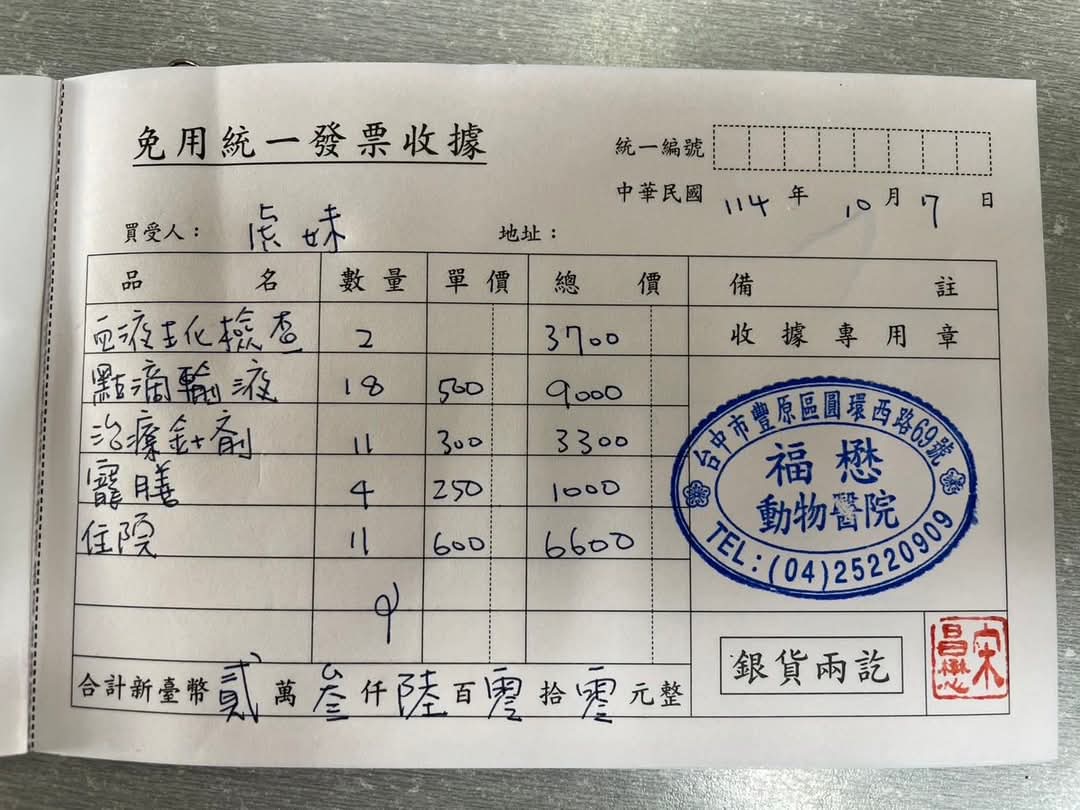 免用統一發票收據
統一編號
中華民國 114 年 10 月 7 日
買受人： 虎妹 地址：
品名 數量 單價 總價 備註
血液生化檢查 2 3700 收據專用章
點滴輸液 18 500 9000
治療針劑 11 300 3300
寵膳 4 250 1000
住院 11 600 6600
台中市豐原區圓環西路69號
福懋
動物醫院
TEL:(04)25220909
合計新臺幣貳萬叁仟陸百零拾零元整
銀貨兩訖
宋昌懋